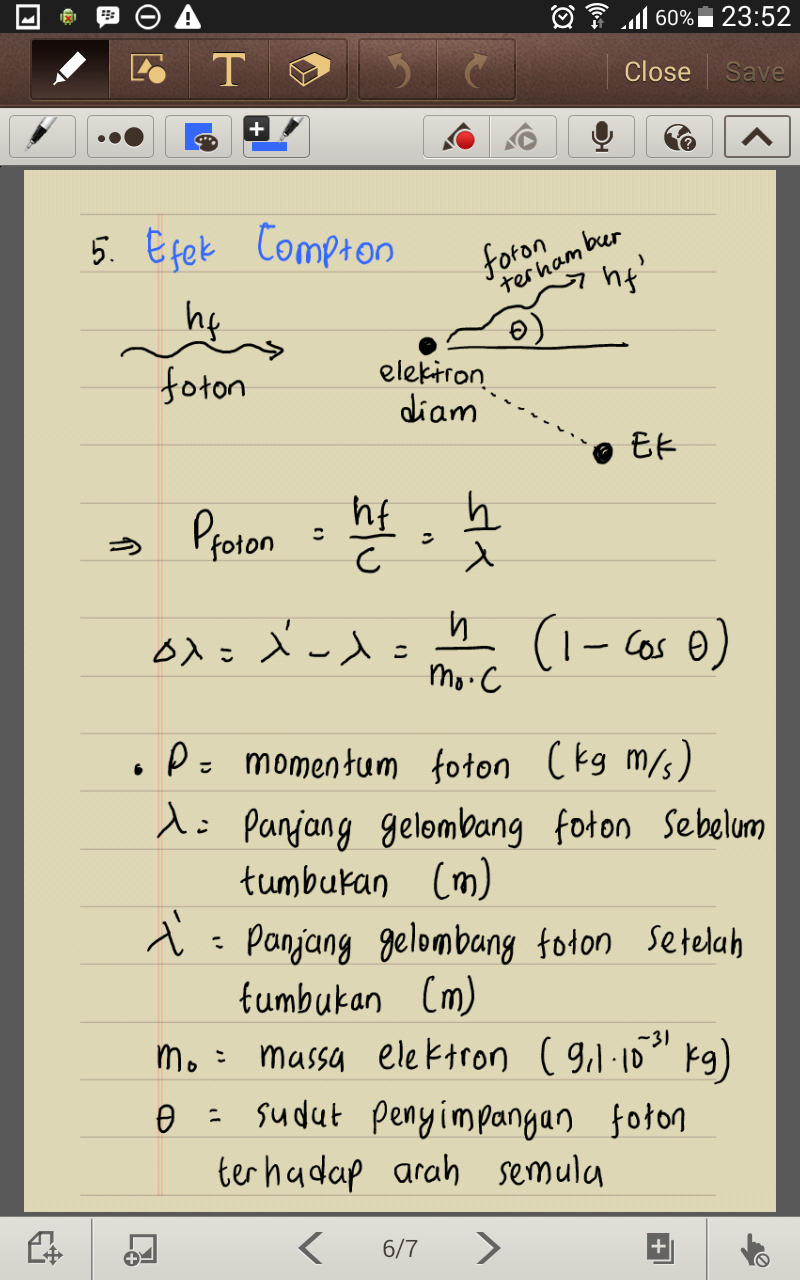 60% 23:52
T Close Save
5. Efek Compton
foton
terhambur
hf'
hf
θ
foton
elektron
diam
Ek
⇒ P foton = hf/c = h/λ
Δλ = λ' - λ = h/m₀·c (1 - cos θ)
• P = momentum foton (kg m/s)
λ = Panjang gelombang foton sebelum
tumbukan (m)
λ' = Panjang gelombang foton setelah
tumbukan (m)
m₀ = massa elektron (9,1·10⁻³¹ kg)
θ = sudut penyimpangan foton
terhadap arah semula
6/7